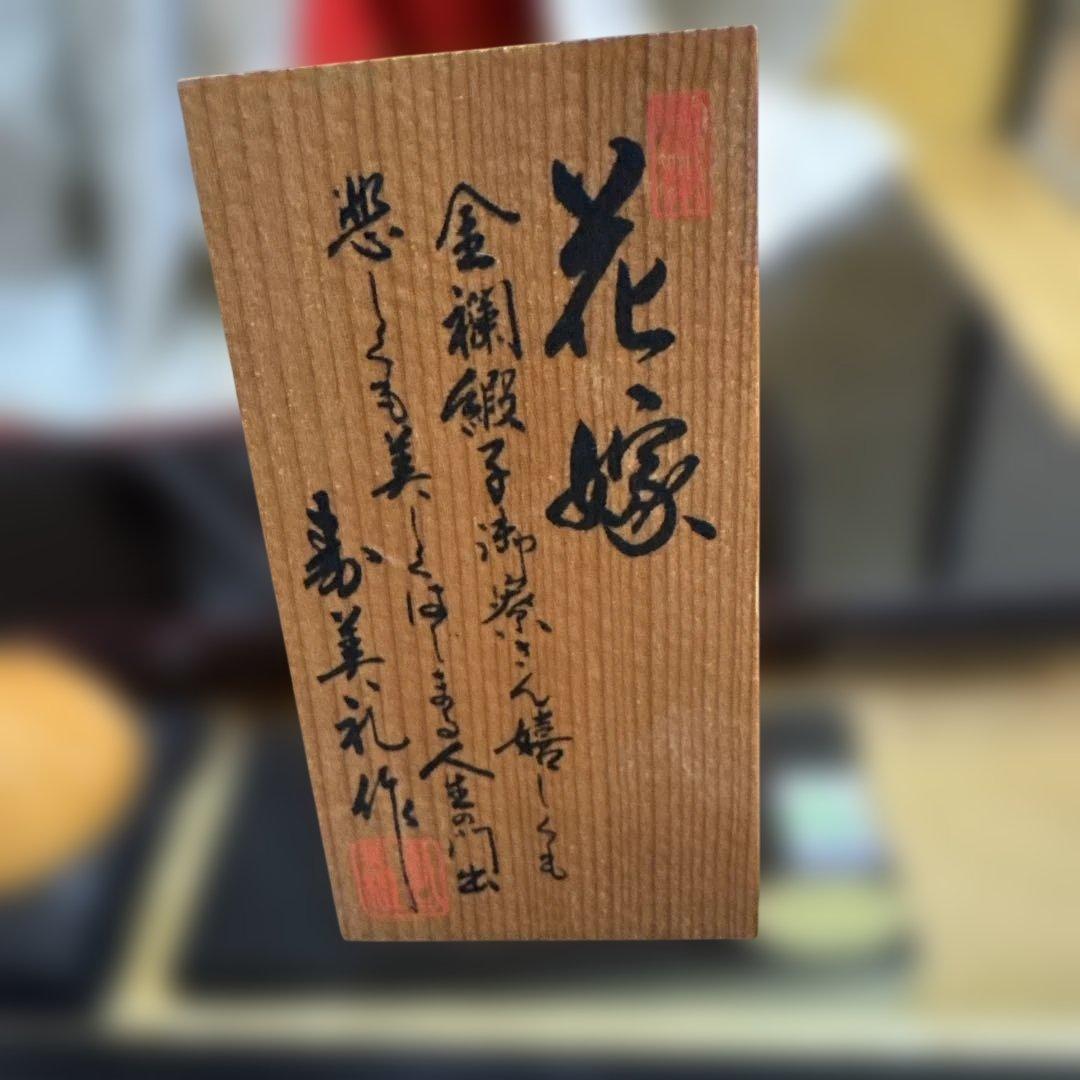 花嫁
金襴緞子御寮さん嬉しくも
悲しくも美しくはじまる人生の門出
寿美礼作